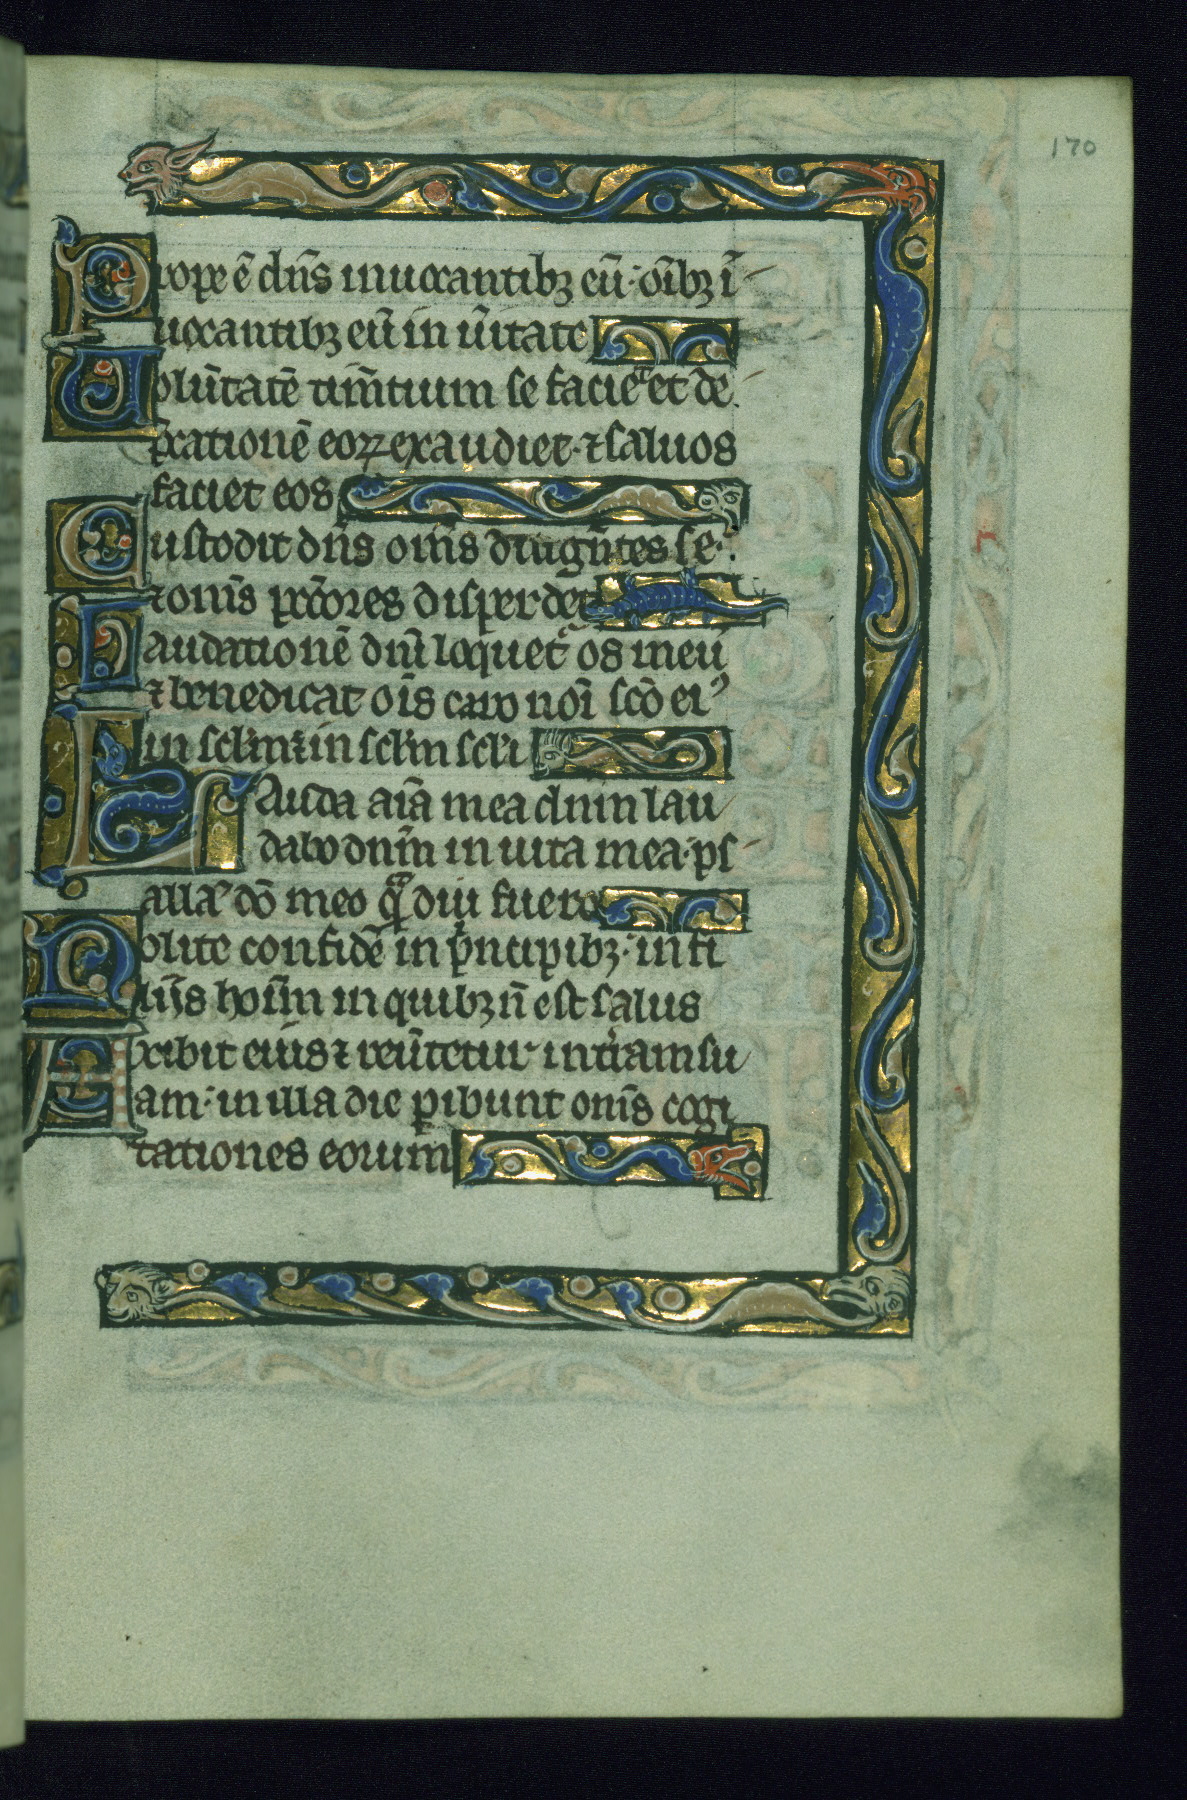 170
Prope ē dn̄s inuocantibꝫ eū· oībꝫ ī
uocantibꝫ eū in ūitate
Uolūtatē tim̄tium se faciet et de
p̄cationē eoꝝ exaudiet· ⁊ saluos
faciet eos
Custodit dn̄s om̄s dilign̄tes se·
⁊ om̄s pc̄cores disperdet
Laudationē dn̄i loquet᷑ os meū
⁊ benedicat oīs caro noī sc̄o eiꝰ
in sclm̄ ⁊ in sclm̄ scl̄i
Lauda aīa mea dnm̄ lau
dabo dnm̄ in uita mea· ps
allā dō meo qᵃ̄diu fuero
Nolite confidē in pⁱncipibꝫ· in fi
lijs hoīm in quibꝫ n̄ est salus
Exibit eius ⁊ reūtetur in tr̄am su
am· in illa die ꝑibunt om̄s cogi
tationes eorum